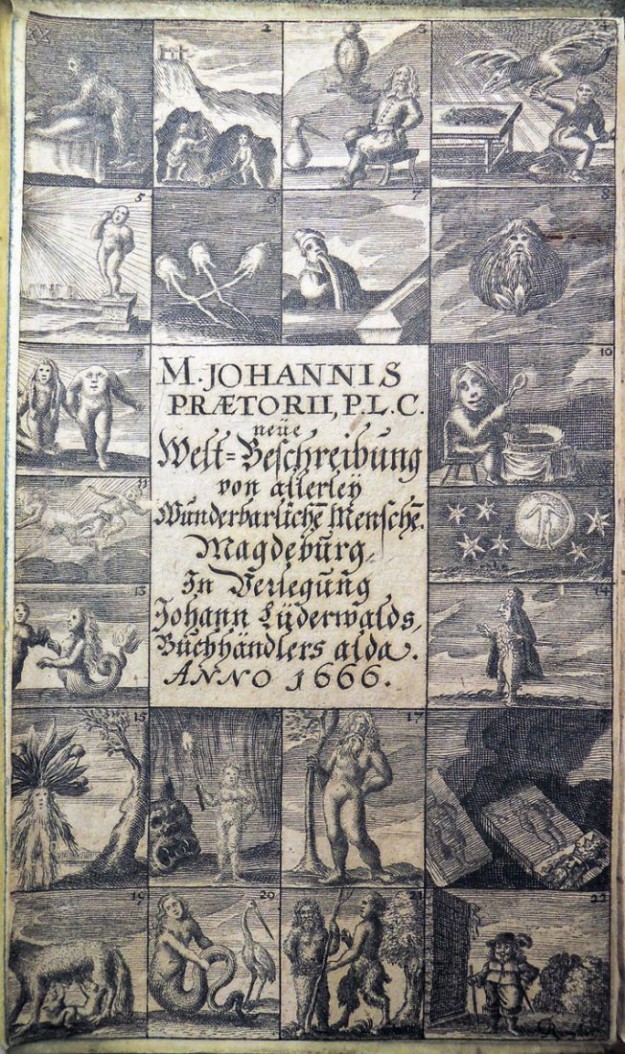 2 3
5 6 7 8
M. JOHANNIS
PRÆTORII, P.L.C.
neüe
Welt=Beschreibung
von allerley
Wunderbarlichē Menschē.
Magdeburg,
In Verlegung
Johann Lüderwalds,
Buchhändlers alda.
ANNO 1666.
9
10
11
13
14
15 16 17
19 20 21 22